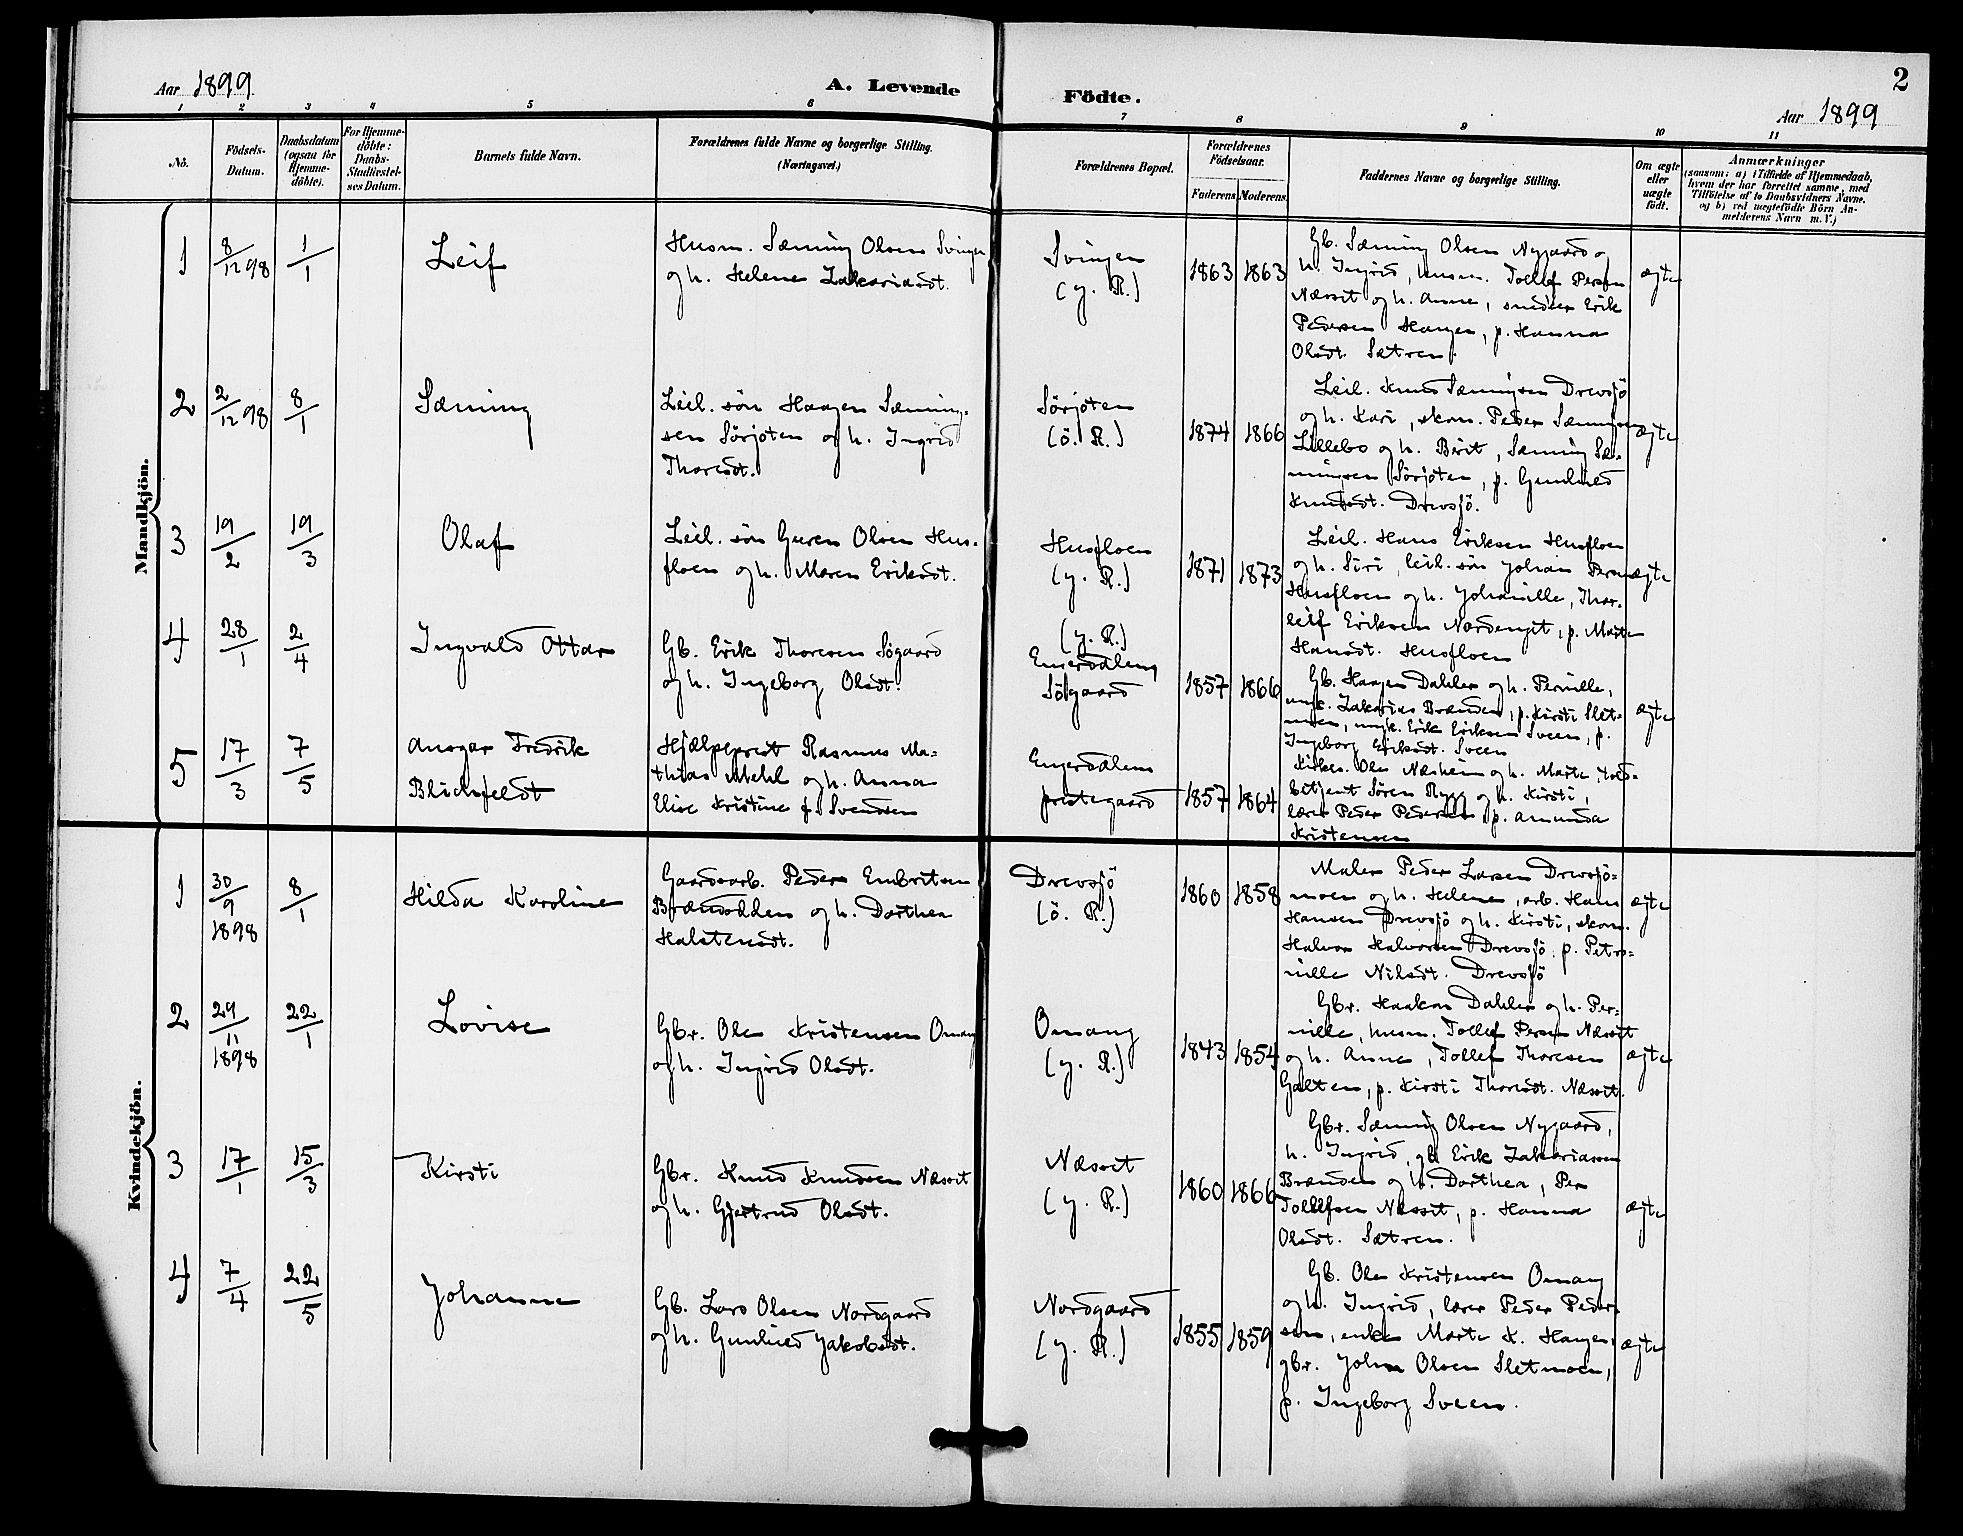 2
Aar 1899
A. Levende
Födte.
Aar 1899
1 2 3 4 5 6 7 8 9 10 11
No.
Födsels-
Datum.
Daabsdatum
(ogsaa for
Hjemme-
döbte).
For Hjemme-
döbte:
Daabs-
Stadfæstel-
ses Datum.
Barnets fulde Navn.
Forældrenes fulde Navne og borgerlige Stilling.
(Næringsvei.)
Forældrenes Bopæl.
Forældrenes
Födselsaar.
Faderens.
Moderens.
Faddernes Navne og borgerlige Stilling.
Om ægte
eller
uægte
født.
Anmærkninger
(saasom: a) i Tilfælde af Hjemmedaab,
hvem der har forrettet samme, med
Tilföielse af to Daabsvidners Navne,
og b) ved uægtefödte Börn An-
melderens Navn m. V.)
Mandkjön.
1
8/12 98
1/1
Leif
Husm. Sæming Olsen Svingen
og h. Helene Zakariasdt.
Svingen
(y. R.)
1863
1863
Gb. Sæming Olsen Nygaard og
h. Ingrid, husm. Tollef Persen
Næsset og h. Anne, snedker Erik
Pedersen Haugen, p. Hanna
Olsdt. Sætren.
ægte
2
2/12 98
8/1
Sæming
Leil. søn Haagen Sæming-
sen Sörjoten og h. Ingrid
Thoresdt.
Sörjoten
(ö. R.)
1874
1866
Leil. Knud Sæmingsen Drevsjö
og h. Kari, skom. Peder Sæmingsen
Lillebo og h. Berit, Sæming Sæ-
mingsen Sörjoten, p. Gunhild
Knudsdt. Drevsjö.
ægte
3
19/2
19/3
Olaf
Leil. søn Guren Olsen Hus-
floen og h. Maren Eriksdt.
Husfloen
(y. R.)
1871
1873
Leil. Hans Eriksen Husfloen
og h. Siri, leil. søn Johan Persen
Husfloen og h. Johanille, Thor-
leif Eriksen Nordenget, p. Marte
Hansdt. Husfloen
ægte
4
28/1
2/4
Ingvald Ottar
Gb. Erik Thoresen Sögaard
og h. Ingeborg Olsdt.
(y. R.)
Engerdalens
Sölgaard
1857
1866
Gb. Haagen Dahlen og h. Pernille,
ungk. Zakarias Brænden, p. Kirsti Slet-
moen, ungk. Erik Eriksen Sveen, p.
Ingeborg Eriksdt. Sveen
ægte
5
17/3
7/5
Ansgar Fredrik
Blichfeldt
Hjælpeprest Rasmus Ma-
thias Mehl og h. Anna
Elise Kristine f. Svendsen
Engerdalens
prestegaard
1857
1864
Kirkes. Ole Næsheim og h. Marte, told-
betjent Sören Rygg og h. Kirsti,
lærer Peder Pedersen, p. Amunda
Kristensen
Kvindekjön.
1
30/9
1898
8/1
Hilda Karoline
Gaardsarb. Peder Embritsen
Brænodden og h. Dorthea
Halstensdt.
Drevsjö
(ö. R.)
1860
1858
Maler Peder Larsen Drevsjö-
moen og h. Helene, arb. Hans
Hansen Drevsjö og h. Kirsti, skom.
Halvor Halvorsen Drevsjö, p. Petro-
nille Nilsdt. Drevsjö
ægte
2
29/11
1898
22/1
Lovise
Gbr. Ole Kristensen Omang
og h. Ingrid Olsdt.
Omang
(y. R.)
1843
1854
Gbr. Haakon Dahlen og h. Per-
nille, husm. Tollef Persen Næsset
og h. Anne, Tollef Thoresen
Galten, p. Kirsti Thoresdt. Næsset.
ægte
3
17/1
15/3
Kirsti
Gbr. Knud Knudsen Næsset
og h. Gjertrud Olsdt.
Næsset
(y. R.)
1860
1866
Gbr. Sæming Olsen Nygaard,
h. Ingrid, gb. Erik Zakariassen
Brænden og h. Dorthea, Per
Tollefsen Næsset, p. Hanna
Olsdt. Sætren.
ægte
4
7/4
22/5
Johanne
Gb. Lars Olsen Nordgaard
og h. Gunhild Jakobsdt.
Nordgaard
(y. R.)
1855
1859
Gb. Ole Kristensen Omang
og h. Ingrid, lærer Peder Peder-
sen, enken Marte K. Haugen,
gbr. John Olsen Sletmoen,
p. Ingeborg Sveen.
ægte